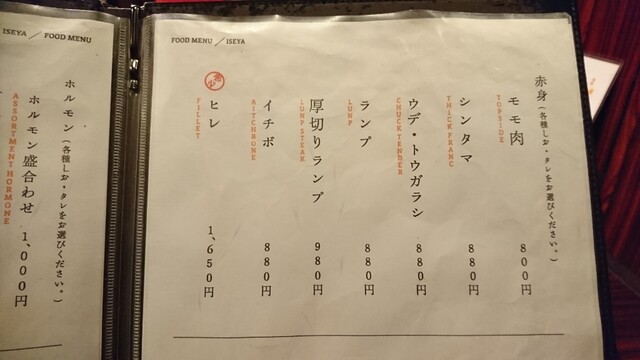 FOOD MENU / ISEYA
赤身(各種しお・タレをお選びください。)
モモ肉 800円
TOPSIDE
シンタマ 880円
THICK FRANC
ウデ・トウガラシ 880円
CHUCK TENDER
ランプ 880円
LUMP
厚切りランプ 980円
LUMP STEAK
イチボ 880円
AITCHBONE
ヒレ 1,650円
FILLET
ISEYA / FOOD MENU
ホルモン(各種しお・タレをお選びください。)
ホルモン盛合わせ 1,000円
ASSORTMENT HORMONE